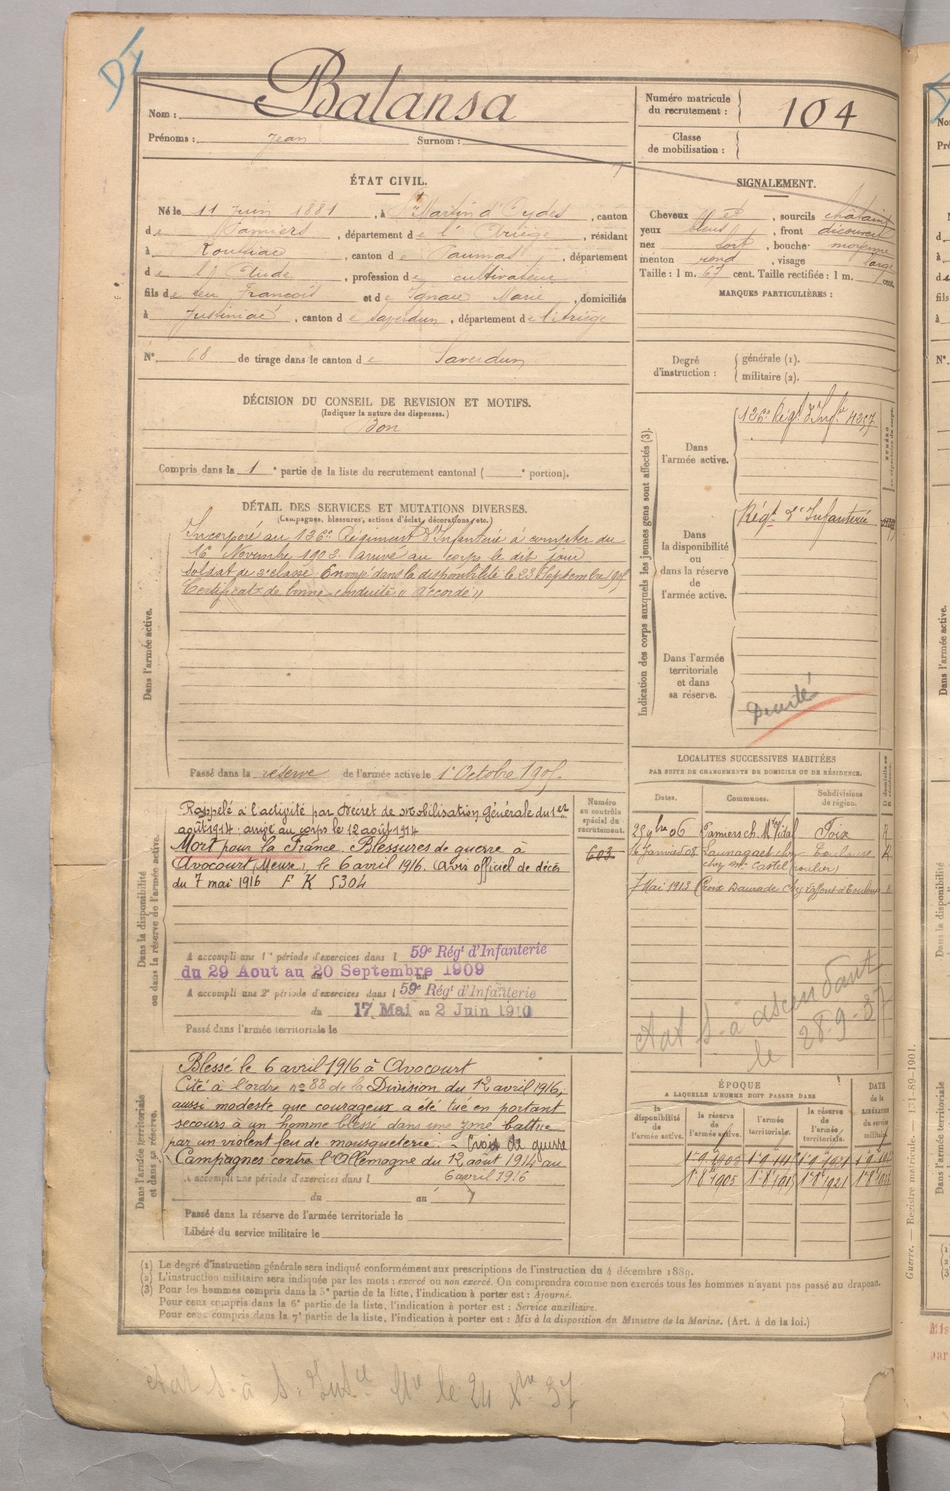 DY
Balansa
Nom :
Prénoms : Jean Surnom :
Numéro matricule du recrutement : 104
Classe de mobilisation :
ÉTAT CIVIL.
Né le 11 Juin 1881, à St Martin d'Oydes, canton
de Pamiers, département de l'Ariège, résidant
à, canton de, département
de l'Aude, profession de cultivateur
fils de feu François et de Ignace Marie, domiciliés
à Justiniac, canton de Saverdun, département de l'Ariège
N° 68 de tirage dans le canton de Saverdun
SIGNALEMENT.
Cheveux, sourcils châtains
yeux bleus, front découvert
nez fort, bouche moyenne
menton rond, visage large
Taille : 1 m. 67 cent. Taille rectifiée : 1 m. cent.
MARQUES PARTICULIÈRES :
Degré d'instruction : générale (1). militaire (2).
DÉCISION DU CONSEIL DE REVISION ET MOTIFS.
(Indiquer la nature des dispenses.)
Bon
Compris dans la 1e partie de la liste du recrutement cantonal ( e portion).
DÉTAIL DES SERVICES ET MUTATIONS DIVERSES.
(Campagnes, blessures, actions d'éclat, décorations, etc.)
Dans l'armée active.
Incorporé au 126e Régiment d'Infanterie à compter du
16 Novembre 1902. arrivé au corps le dit jour
soldat de 2e classe. Envoyé dans la disponibilité le 23 Septembre 1905
Certificat de bonne conduite " accordé "
Passé dans la réserve de l'armée active le 1er Octobre 1905.
Indication des corps auxquels les jeunes gens sont affectés (3).
Dans l'armée active.
126e Régt d'Infie 4257
Dans la disponibilité ou dans la réserve de l'armée active.
Régt d'Infanterie
Dans l'armée territoriale et dans sa réserve.
Décédé
Dans la disponibilité ou dans la réserve de l'armée active.
Rappelé à l'activité par Décret de Mobilisation Générale du 1er
août 1914 arrivé au corps le 12 août 1914
Mort pour la France. Blessures de guerre à
Avocourt (Meuse), le 6 avril 1916. Avis officiel de décès
du 7 mai 1916 F K 5304
Numéro au contrôle spécial du recrutement.
603
A accompli une 1re période d'exercices dans l 59e Régt d'Infanterie
du 29 Aout au 20 Septembre 1909
A accompli une 2e période d'exercices dans l 59e Régt d'Infanterie
du 17 Mai au 2 Juin 1910
Passé dans l'armée territoriale le
LOCALITÉS SUCCESSIVES HABITÉES
PAR SUITE DE CHANGEMENTS DE DOMICILE OU DE RÉSIDENCE.
Dates. Communes. Subdivisions de région.
25 9bre 06 Pamiers ch. Mr Vidal Foix
16 Janvier 08 Launaguet Toulouse
7 Mai 1913 Croix Daurade Toulouse
Etat S. à ascendant
le 28-9-37
Dans l'armée territoriale et dans sa réserve.
Blessé le 6 avril 1916 à Avocourt
Cité à l'ordre no 88 de la Division du 12 avril 1916,
aussi modeste que courageux a été tué en portant
secours à un homme blessé dans une zone battue
par un violent feu de mousqueterie. - Croix de guerre
Campagnes contre l'Allemagne du 12 août 1914 au
A accompli une période d'exercices dans l 6 avril 1916
du au
Passé dans la réserve de l'armée territoriale le
Libéré du service militaire le
ÉPOQUE
A LAQUELLE L'HOMME DOIT PASSER DANS
la disponibilité de l'armée active. la réserve de l'armée active. l'armée territoriale. la réserve de l'armée territoriale. DATE de la LIBÉRATION du service militaire.
(1) Le degré d'instruction générale sera indiqué conformément aux prescriptions de l'instruction du 4 décembre 1889.
(2) L'instruction militaire sera indiquée par les mots : exercé ou non exercé. On comprendra comme non exercés tous les hommes n'ayant pas passé au drapeau.
(3) Pour les hommes compris dans la 5e partie de la liste, l'indication à porter est : Ajourné.
Pour ceux compris dans la 6e partie de la liste, l'indication à porter est : Service auxiliaire.
Pour ceux compris dans la 7e partie de la liste, l'indication à porter est : Mis à la disposition du Ministre de la Marine. (Art. 4 de la loi.)
Guerre. — Registre matricule. — 131-89-1901.
Etat S. à S. le 24 Xbre 37